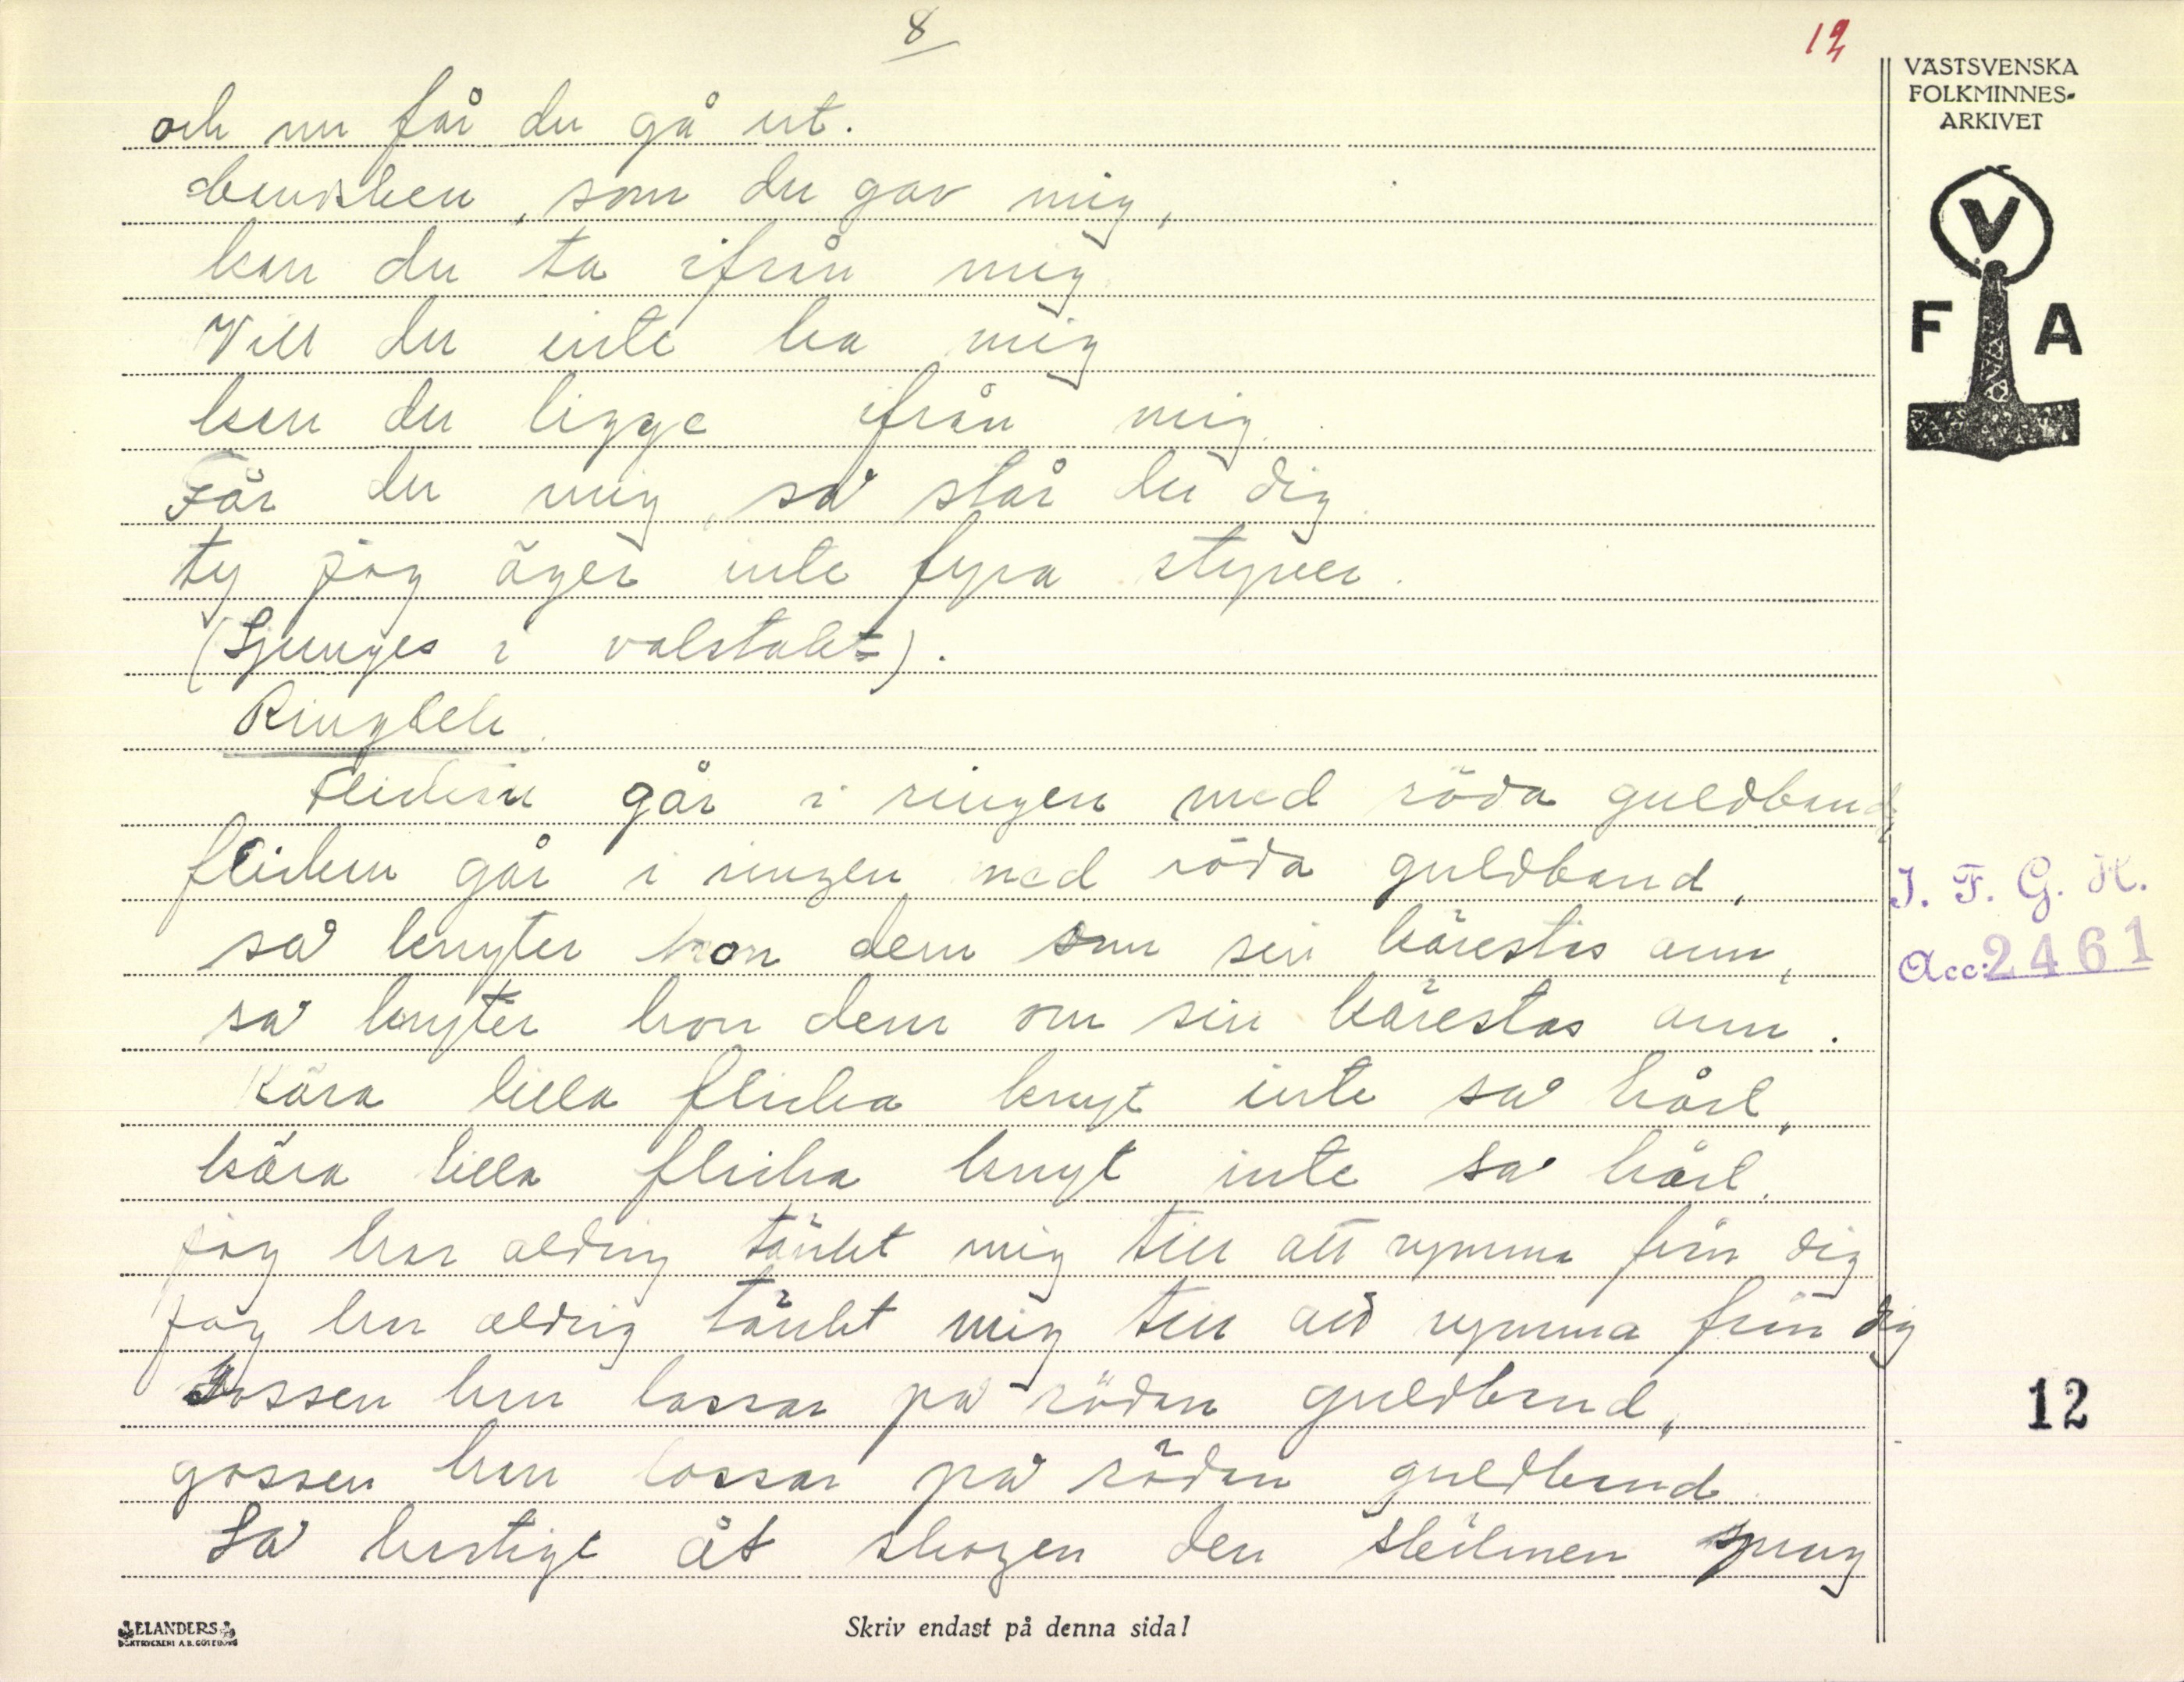 8
12
VÄSTSVENSKA
FOLKMINNES-
ARKIVET
V
F A
och nu får du gå ut.
handsken, som du gav mig,
kan du ta ifrån mig
Vill du inte ha mig
kan du ligga ifrån mig.
Får du mig, så slår du dig
ty jag äger inte fyra styver.
(Sjunges i valstakt).
Ringlek.
Flickan går i ringen med röda guldband,
flickan går i ringen med röda guldband,
så knyter hon dem om sin kärestas arm,
så knyter hon dem om sin kärestas arm.
Kära lilla flicka knyt inte så hårt,
kära lilla flicka knyt inte så hårt.
jag har aldrig tänkt mig till att rymma från dig
jag har aldrig tänkt mig till att rymma från dig
Gossen han lossar på rödan guldband,
gossen han lossar på rödan guldband
Så hastigt åt skogen den skälmen sprang
I. F. G. H.
Acc: 2461
12
ELANDERS
BOKTRYCKERI A.B. GÖTEBORG
Skriv endast på denna sida!